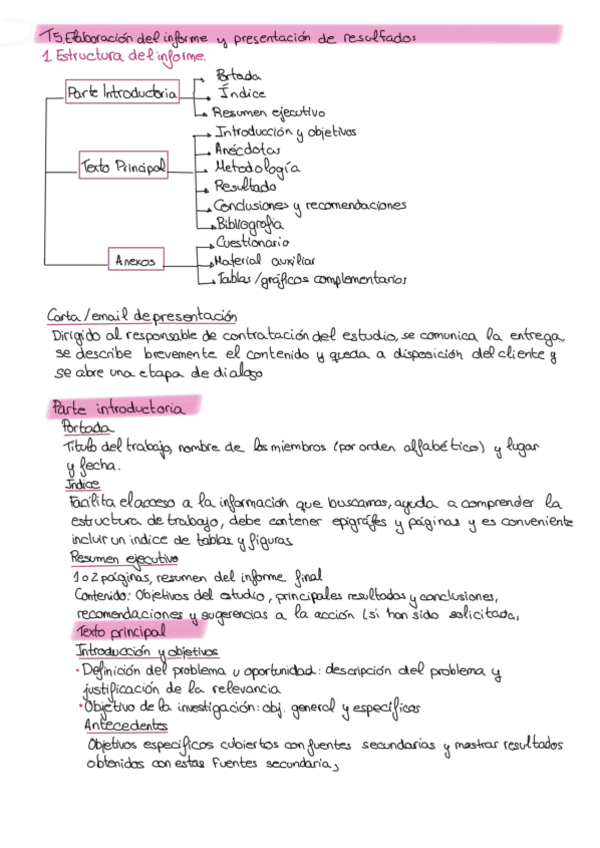 T5. Elaboración del informe y presentación de resultados
1. Estructura del informe.
Parte Introductoria
Portada
Índice
Resumen ejecutivo
Texto Principal
Introducción y objetivos
Anécdotas
Metodología
Resultado
Conclusiones y recomendaciones
Bibliografía
Anexos
Cuestionario
Material auxiliar
Tablas/gráficos complementarios
Carta/email de presentación
Dirigido al responsable de contratación del estudio, se comunica la entrega,
se describe brevemente el contenido y queda a disposición del cliente y
se abre una etapa de dialogo
Parte introductoria
Portada
Titulo del trabajo, nombre de los miembros (por orden alfabético) y lugar
y fecha.
Indice
Facilita el acceso a la información que buscamos, ayuda a comprender la
estructura de trabajo, debe contener epigráfes y páginas y es conveniente
incluir un indice de tablas y figuras
Resumen ejecutivo
1 o 2 páginas, resumen del informe final
Contenido: Objetivos del estudio, principales resultados y conclusiones,
recomendaciones y sugerencias a la acción (si han sido solicitada,
Texto principal
Introducción y objetivos
• Definición del problema u oportunidad: descripción del problema y
justificación de la relevancia
• Objetivo de la investigación: obj. general y específicos
Antecedentes
Objetivos específicos cubiertos con fuentes secundarias y mostrar resultados
obtenidos con estas fuentes secundaria,